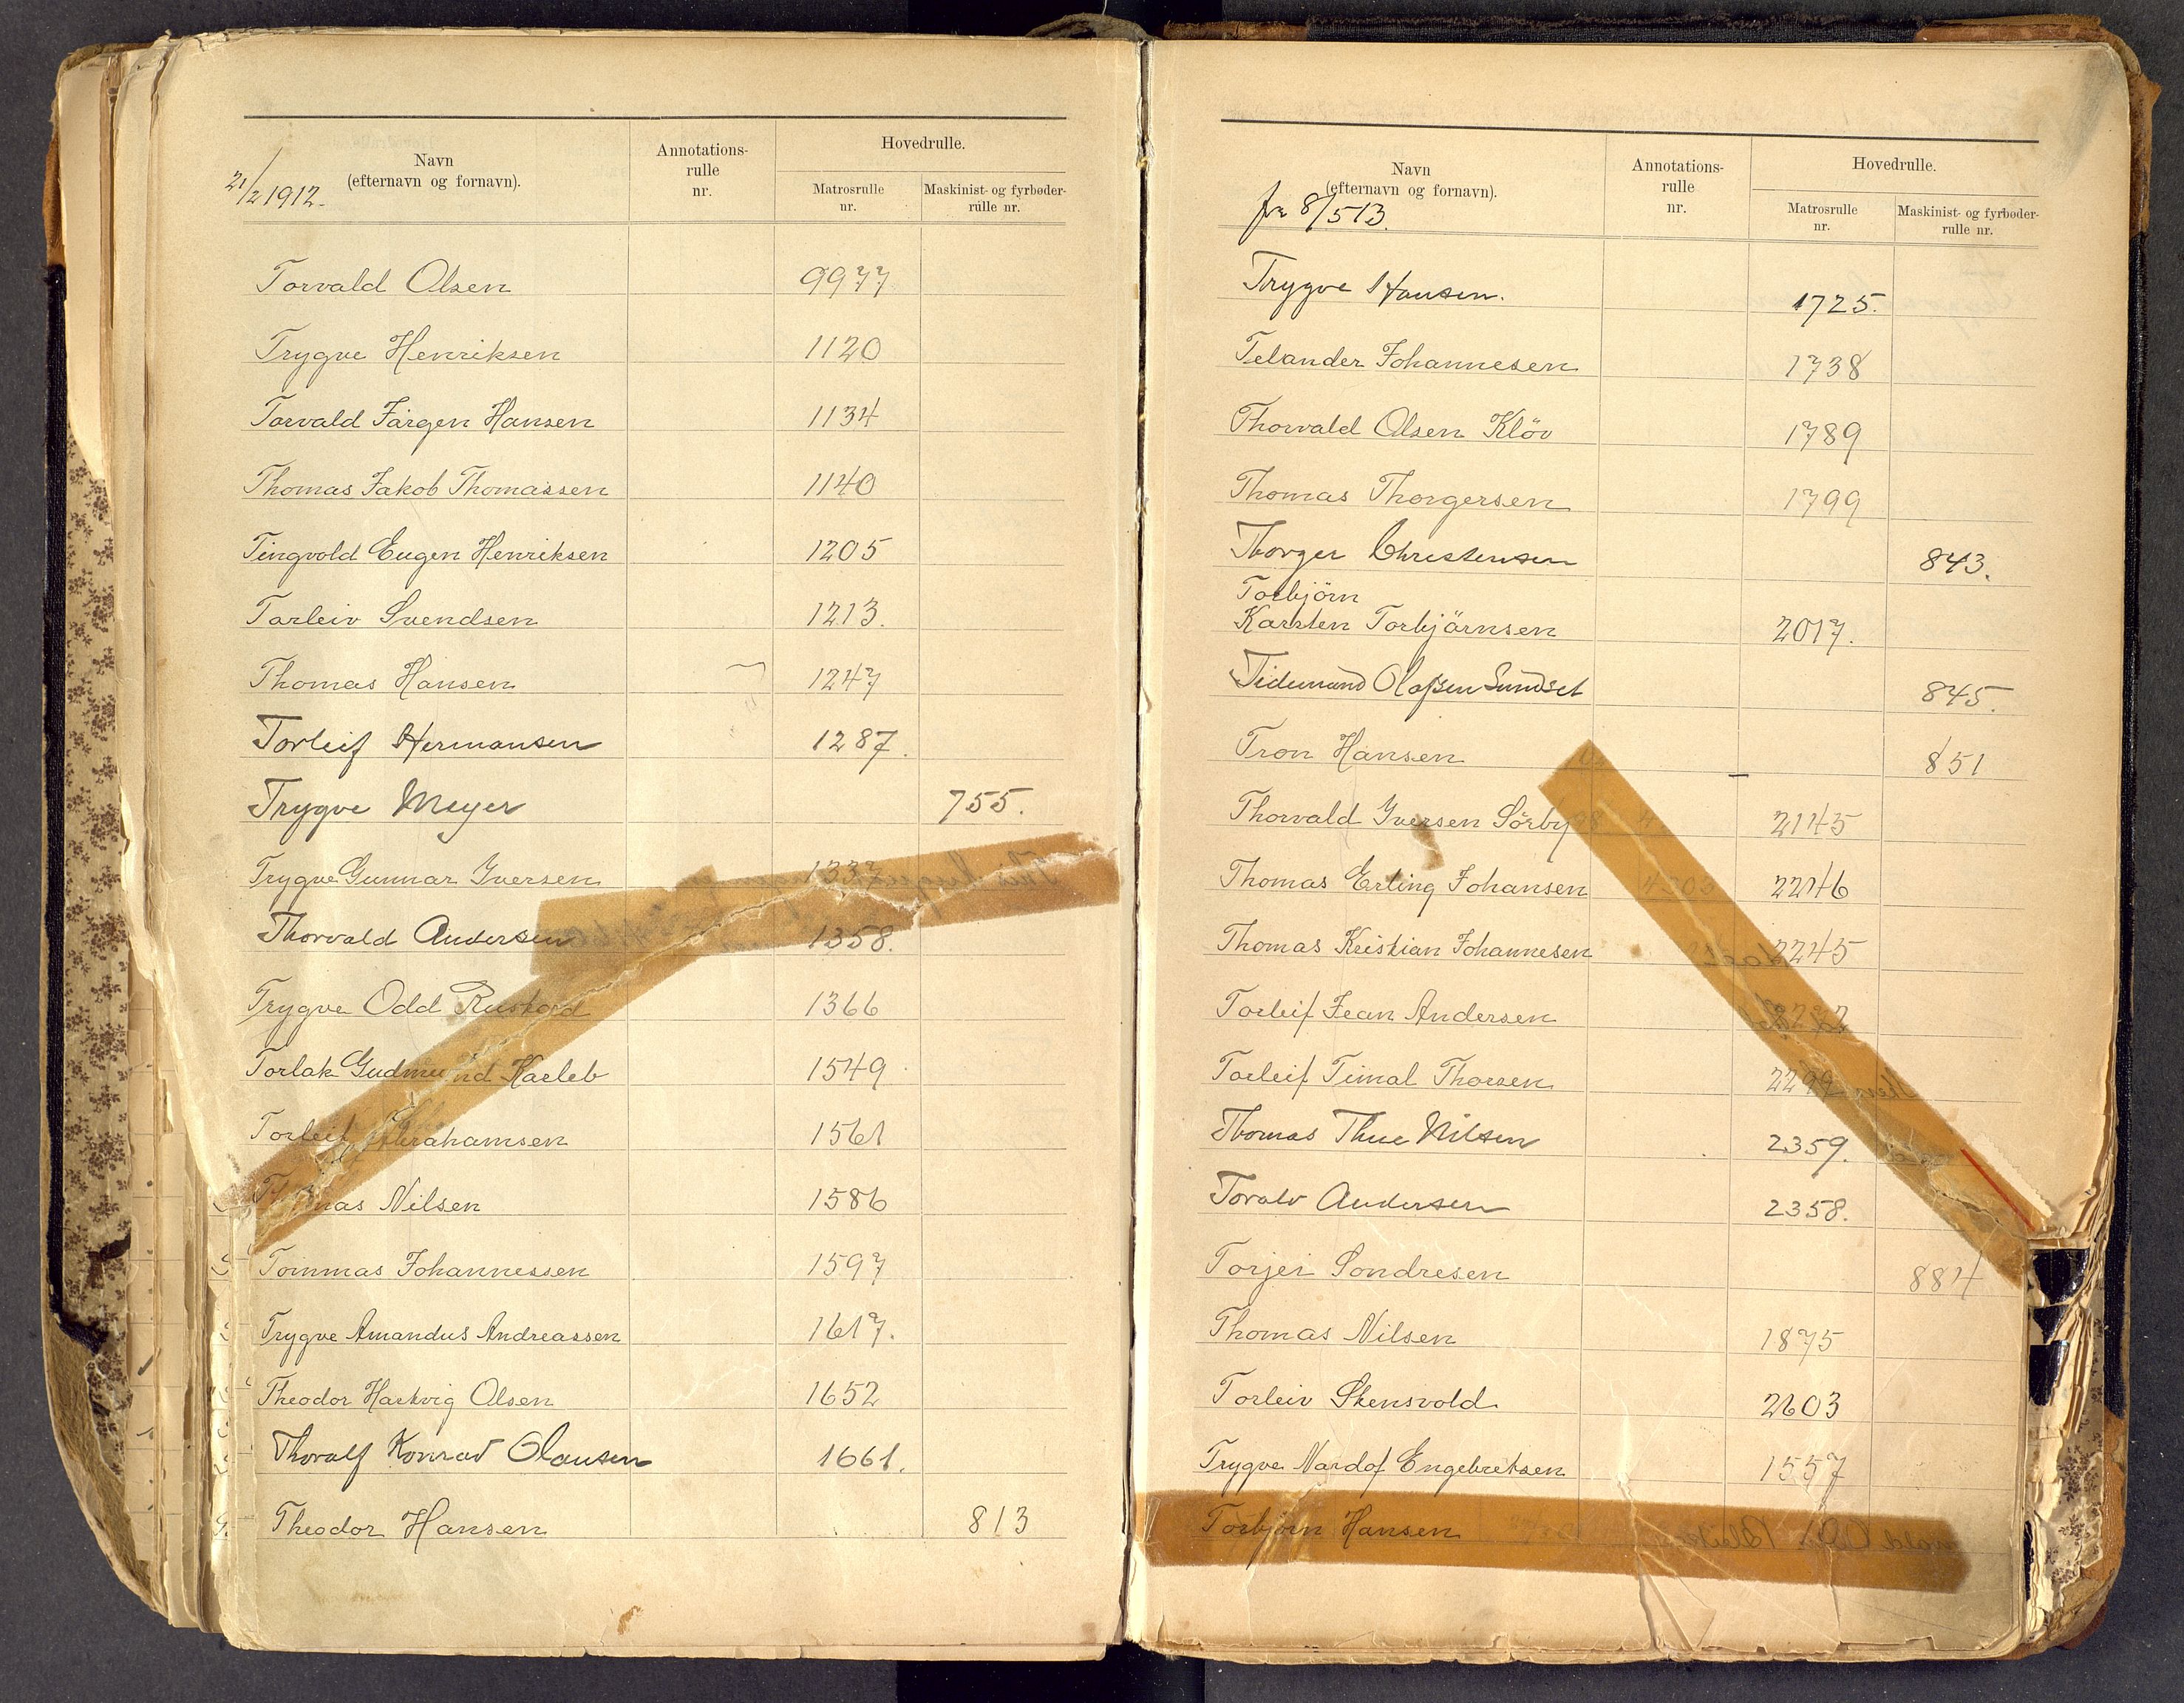 21/2 1912.
Navn
(efternavn og fornavn).
Annotations-
rulle
nr.
Hovedrulle.
Matrosrulle
nr.
Maskinist- og fyrbøder-
rulle nr.
Torvald Olsen 9977
Trygve Henriksen 1120
Torvald Jørgen Hansen 1134
Thomas Jakob Thomassen 1140
Tingvold Eugen Henriksen 1205
Torleiv Svendsen 1213.
Thomas Hansen 1247
Torleif Hermansen 1287.
Trygve Meyer 755.
Trygve Gunnar Iversen 1337
Thorvald Andersen 1358.
Trygve Odd Rustad 1366
Torlak Gudmund Karleb 1549
Torleif Abrahamsen 1561
Thomas Nilsen 1586
Tommas Johannessen 1597
Trygve Amandus Andreassen 1617.
Theodor Hartvig Olsen 1652
Thoralf Konrad Olausen 1661.
Theodor Hansen 813
Navn
(efternavn og fornavn).
fra 8/5 13.
Annotations-
rulle
nr.
Hovedrulle.
Matrosrulle
nr.
Maskinist- og fyrbøder-
rulle nr.
Trygve Hansen. 1725.
Telander Johannesen 1738
Thorvald Olsen Kløv 1789
Thomas Thorgersen 1799
Thorger Christensen 843.
Torbjörn
Karsten Torbjörnsen 2017.
Tidemand Olafsen Sundset 845.
Tron Hansen 851
Thorvald Iversen Sörby 2145
Thomas Erling Johansen 2246
Thomas Kristian Johannesen 2245
Torleif Jean Andersen 2272
Torleif Timal Thorsen 2299
Thomas Thue Nilsen 2359.
Toralv Andersen 2358.
Torjei Sondresen 884
Thomas Nilsen 1875
Torleiv Stensvold 2603
Trygve Nardof Engebretsen 1557
Torbjørn Hansen